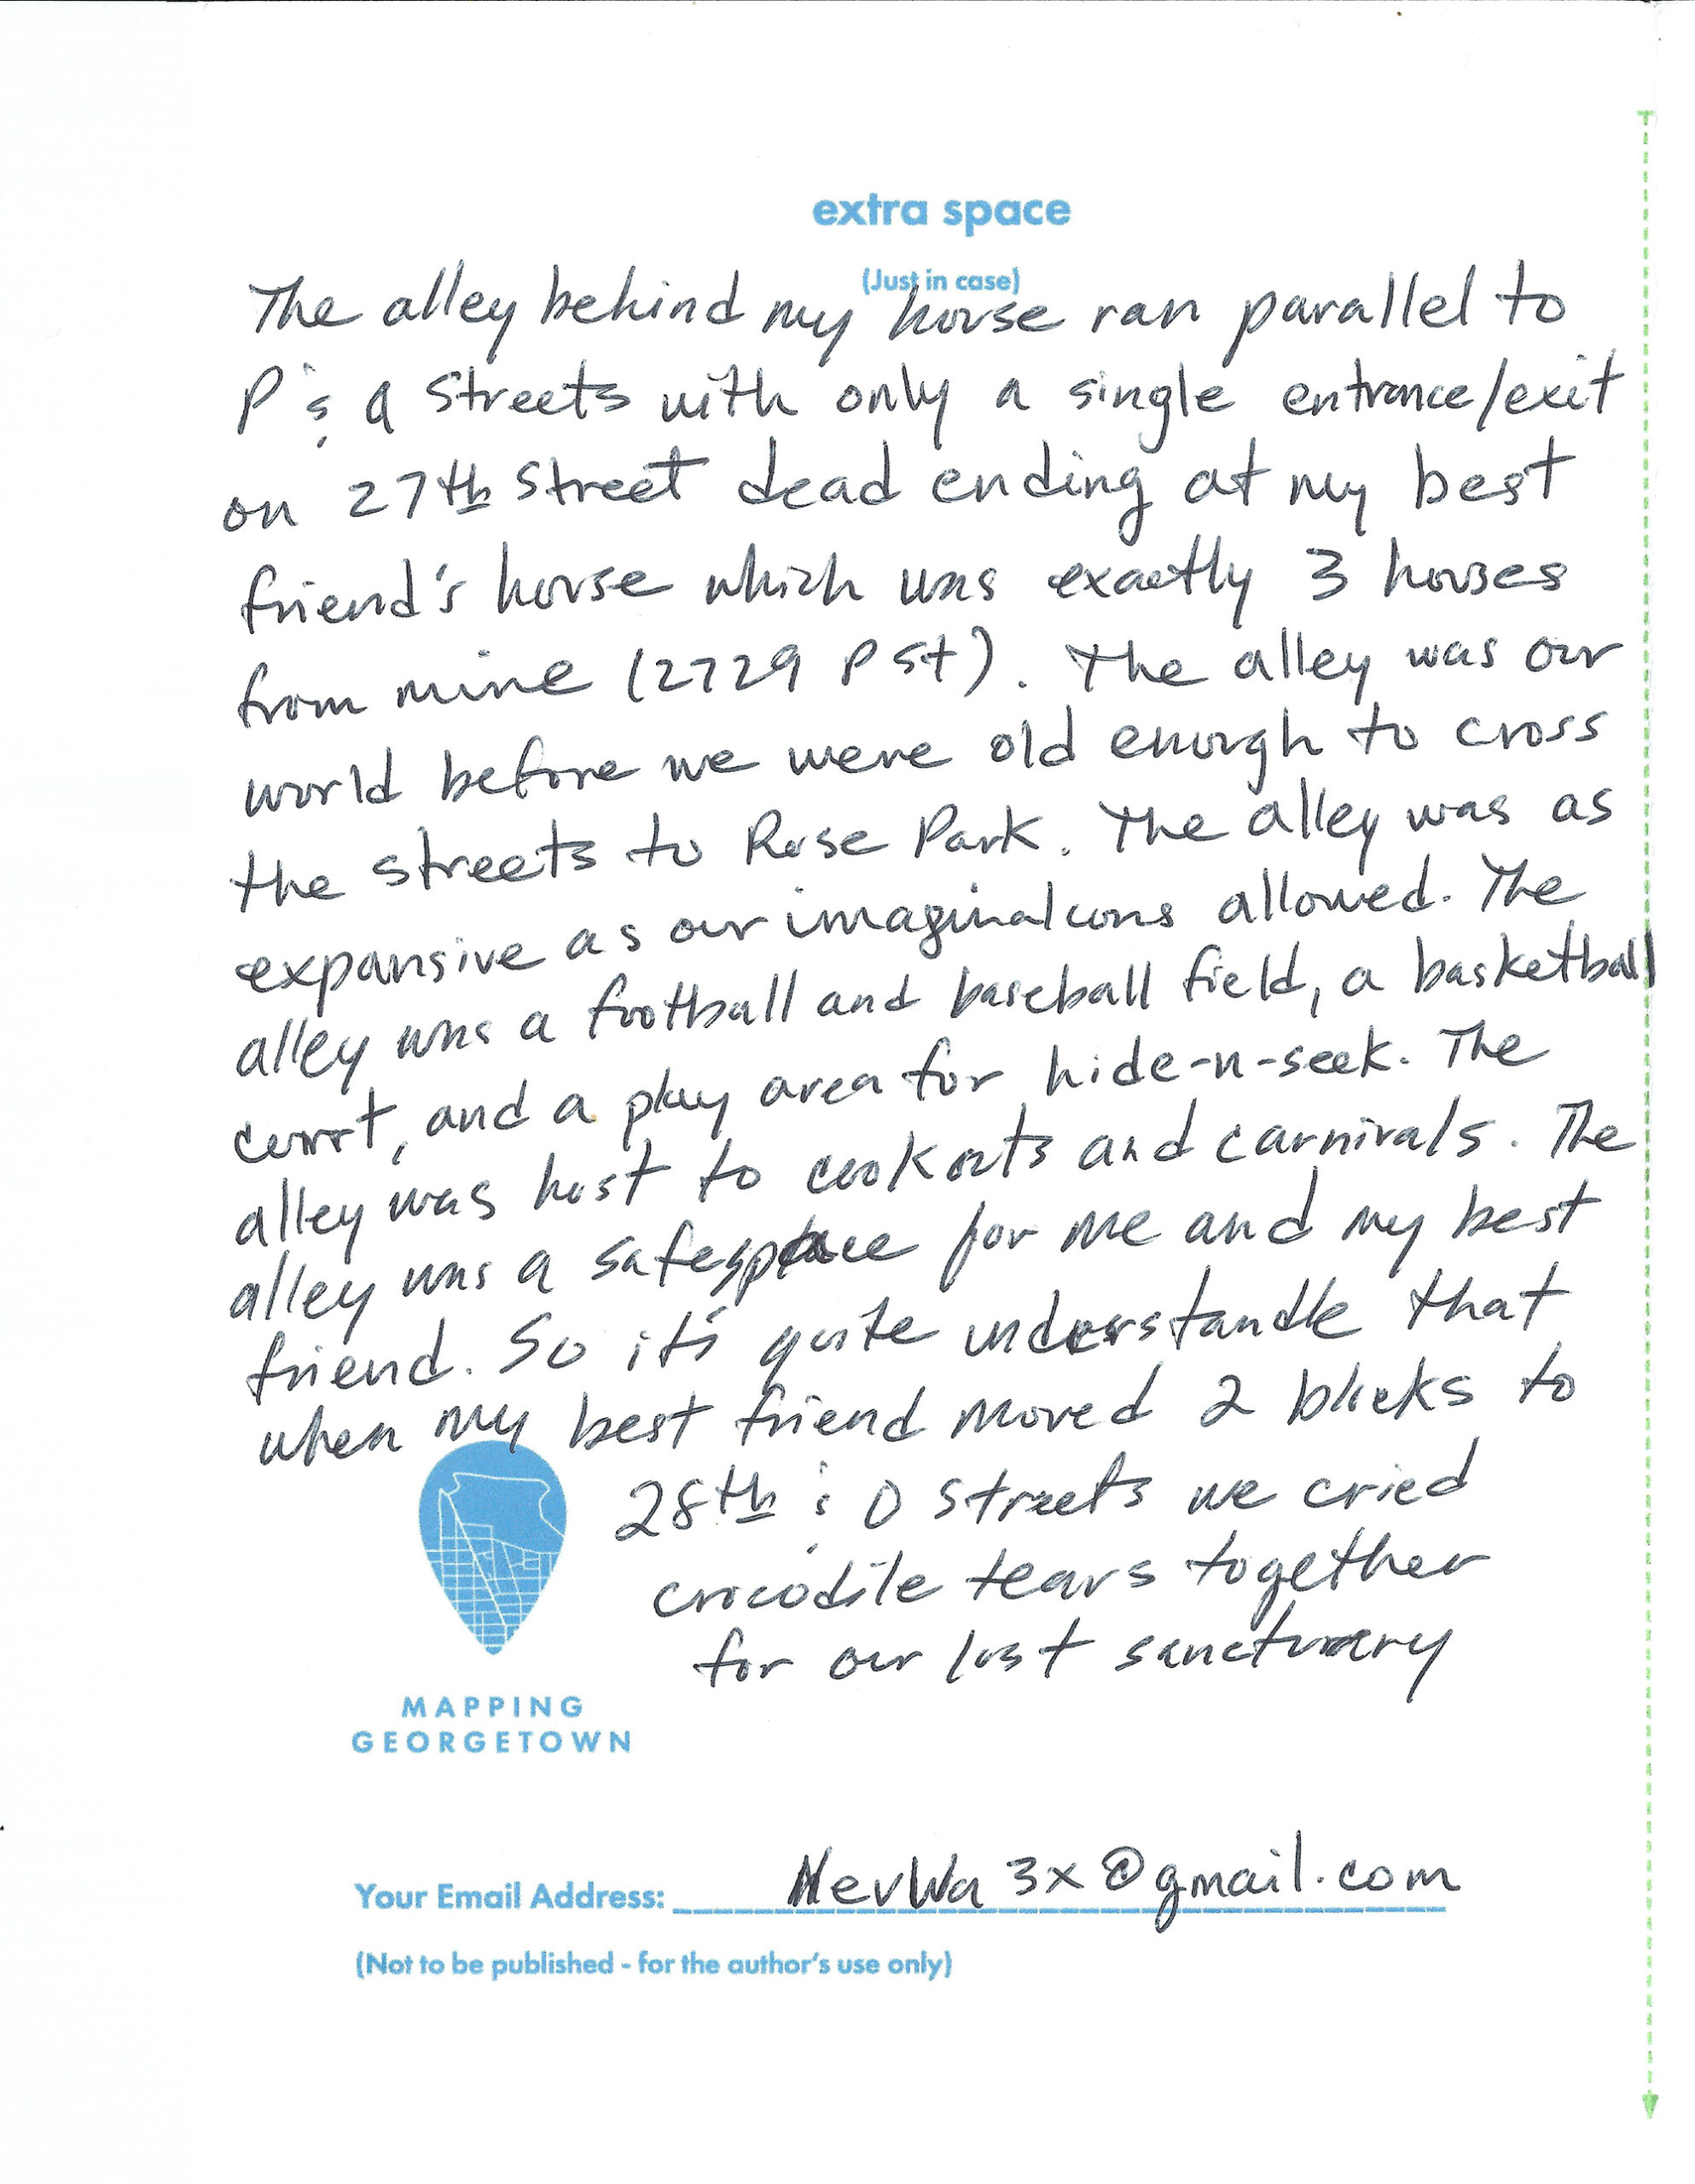 extra space
(Just in case)
The alley behind my house ran parallel to
P & Q Streets with only a single entrance/exit
on 27th Street dead ending at my best
friend's house which was exactly 3 houses
from mine (2729 P St). The alley was our
world before we were old enough to cross
the streets to Rose Park. The alley was as
expansive as our imaginations allowed. The
alley was a football and baseball field, a basketball
court, and a play area for hide-n-seek. The
alley was host to cookouts and carnivals. The
alley was a safespace for me and my best
friend. So it's quite understandle that
when my best friend moved 2 blocks to
28th & O Streets we cried
crocodile tears together
for our lost sanctuary
MAPPING
GEORGETOWN
Your Email Address: NevWa3x@gmail.com
(Not to be published - for the author's use only)